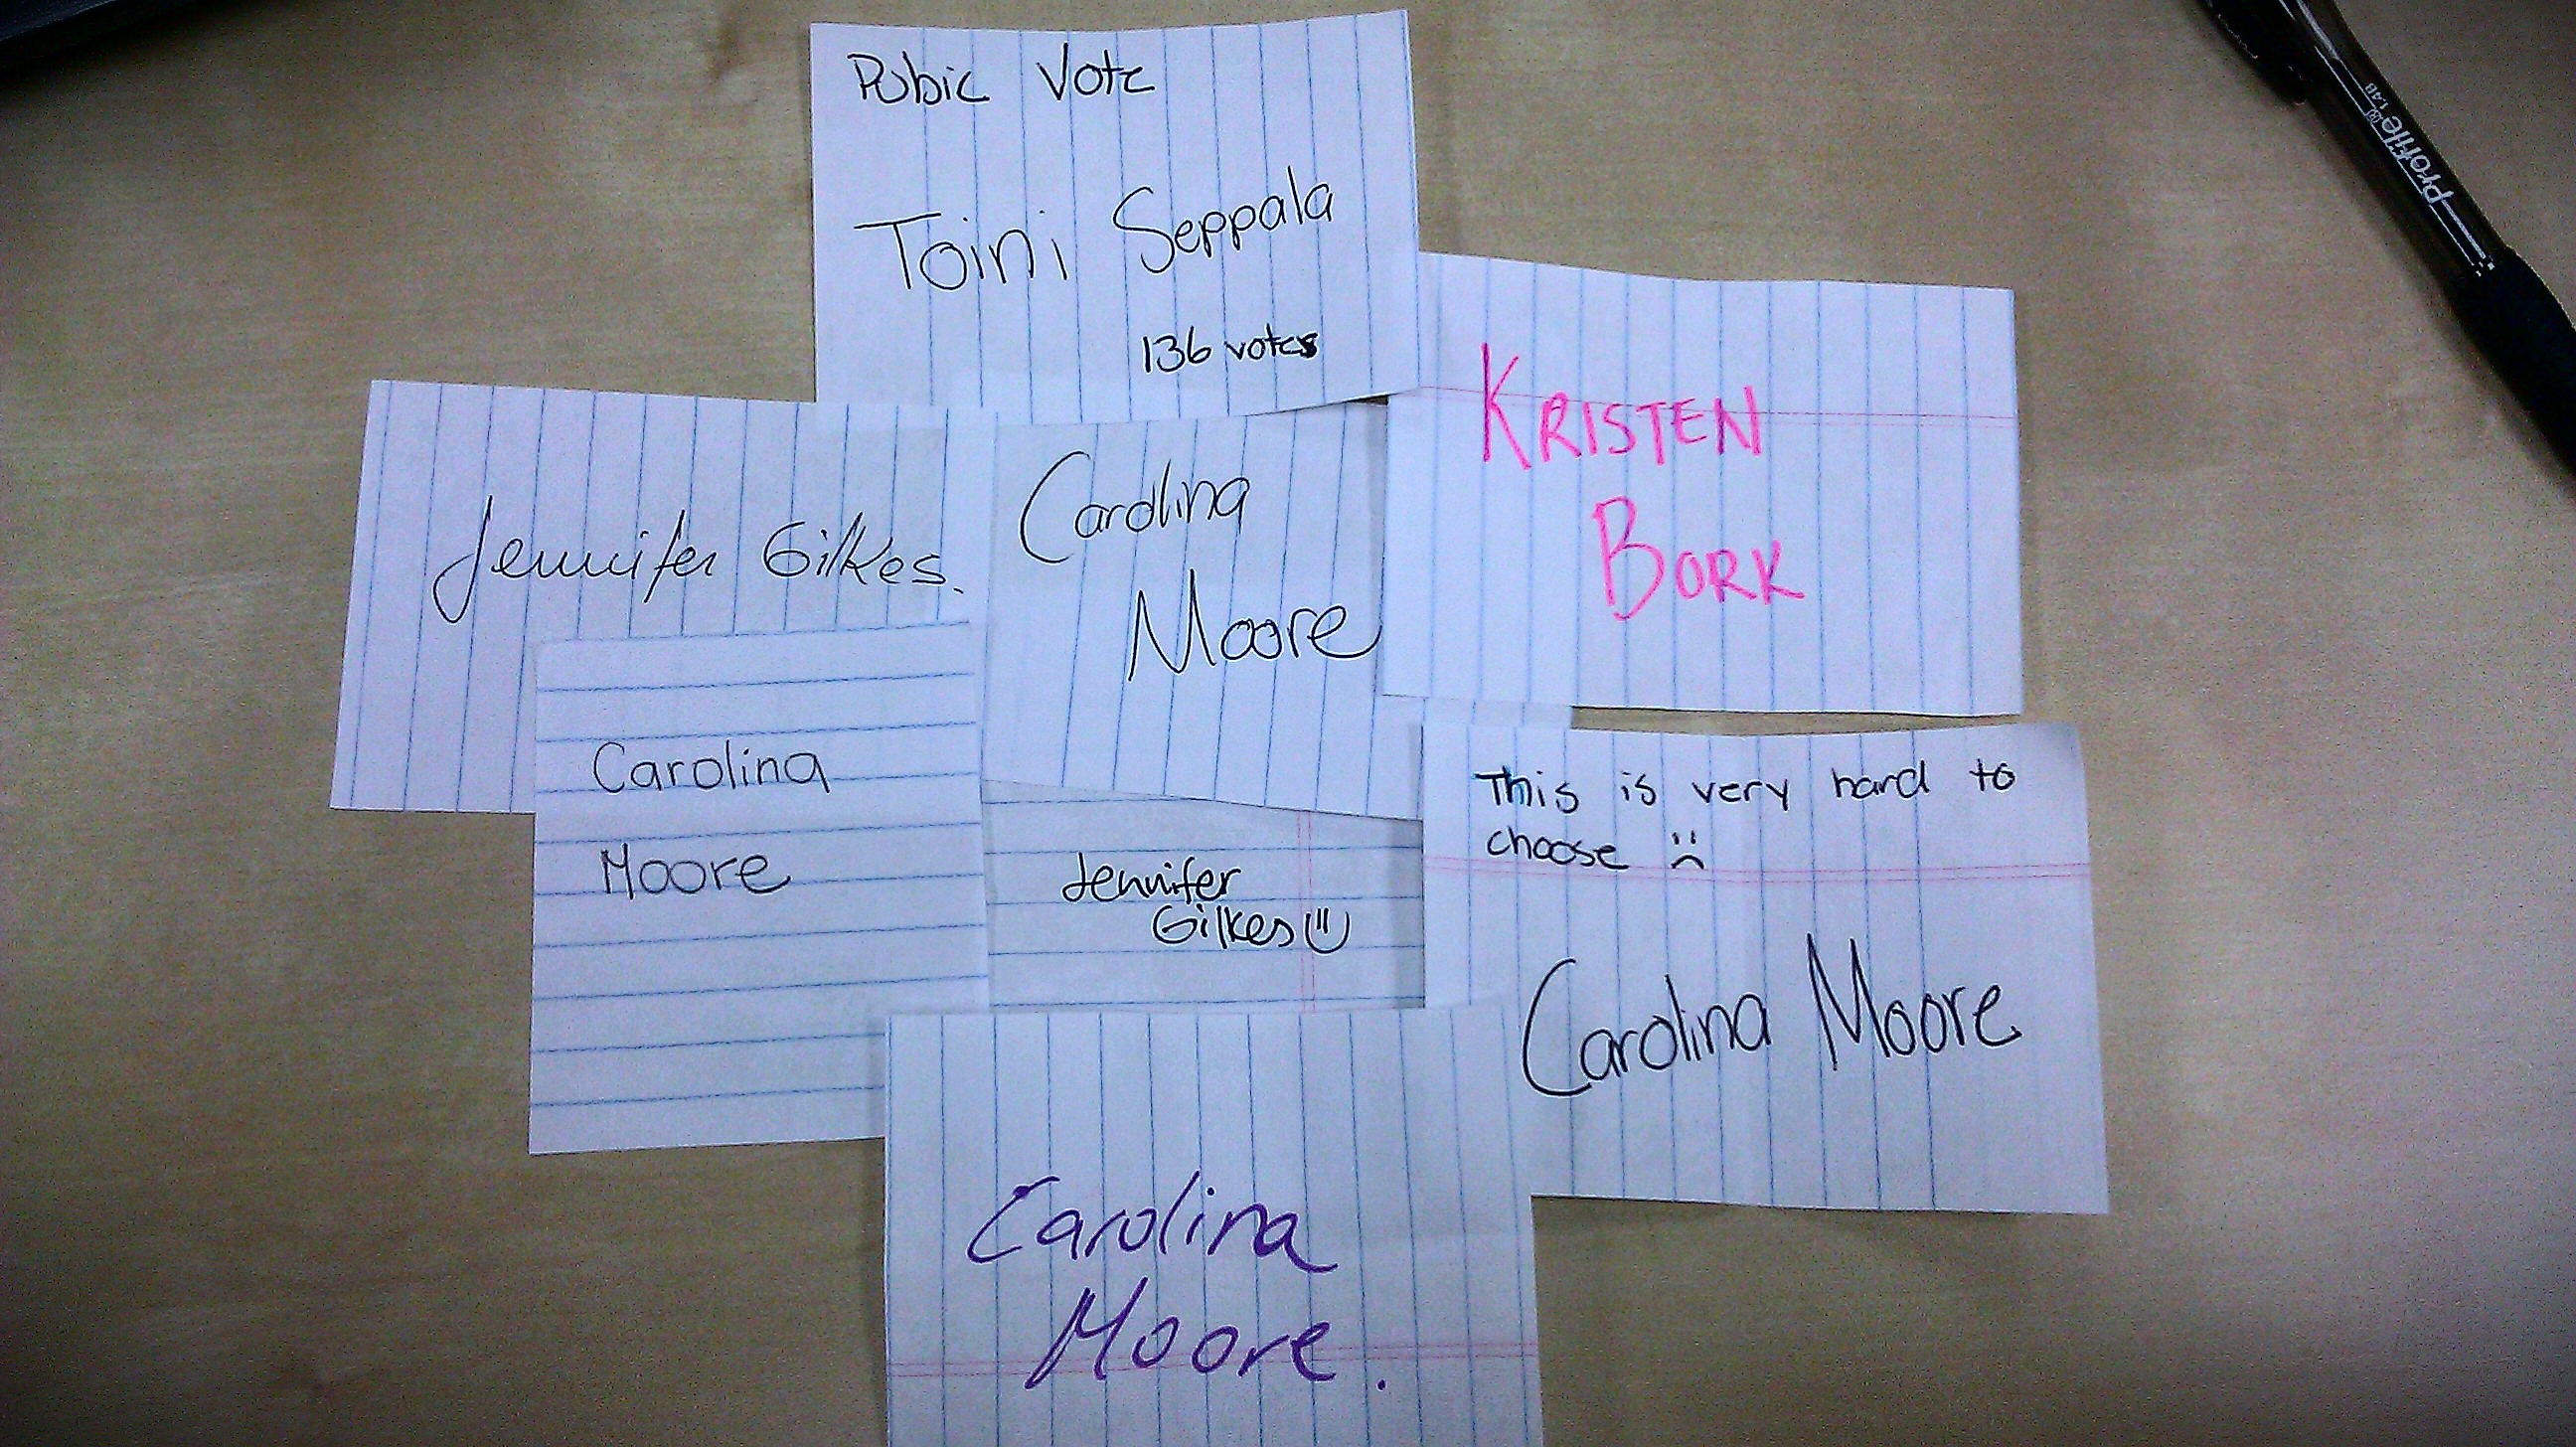 Pubic Vote
Toini Seppala
136 votes
KRISTEN
BORK
Jennifer Gilkes.
Carolina
Moore
Carolina
Moore
Jennifer
Gilkes
This is very hard to
choose :(
Carolina Moore
Carolina
Moore.
profile
1.4B